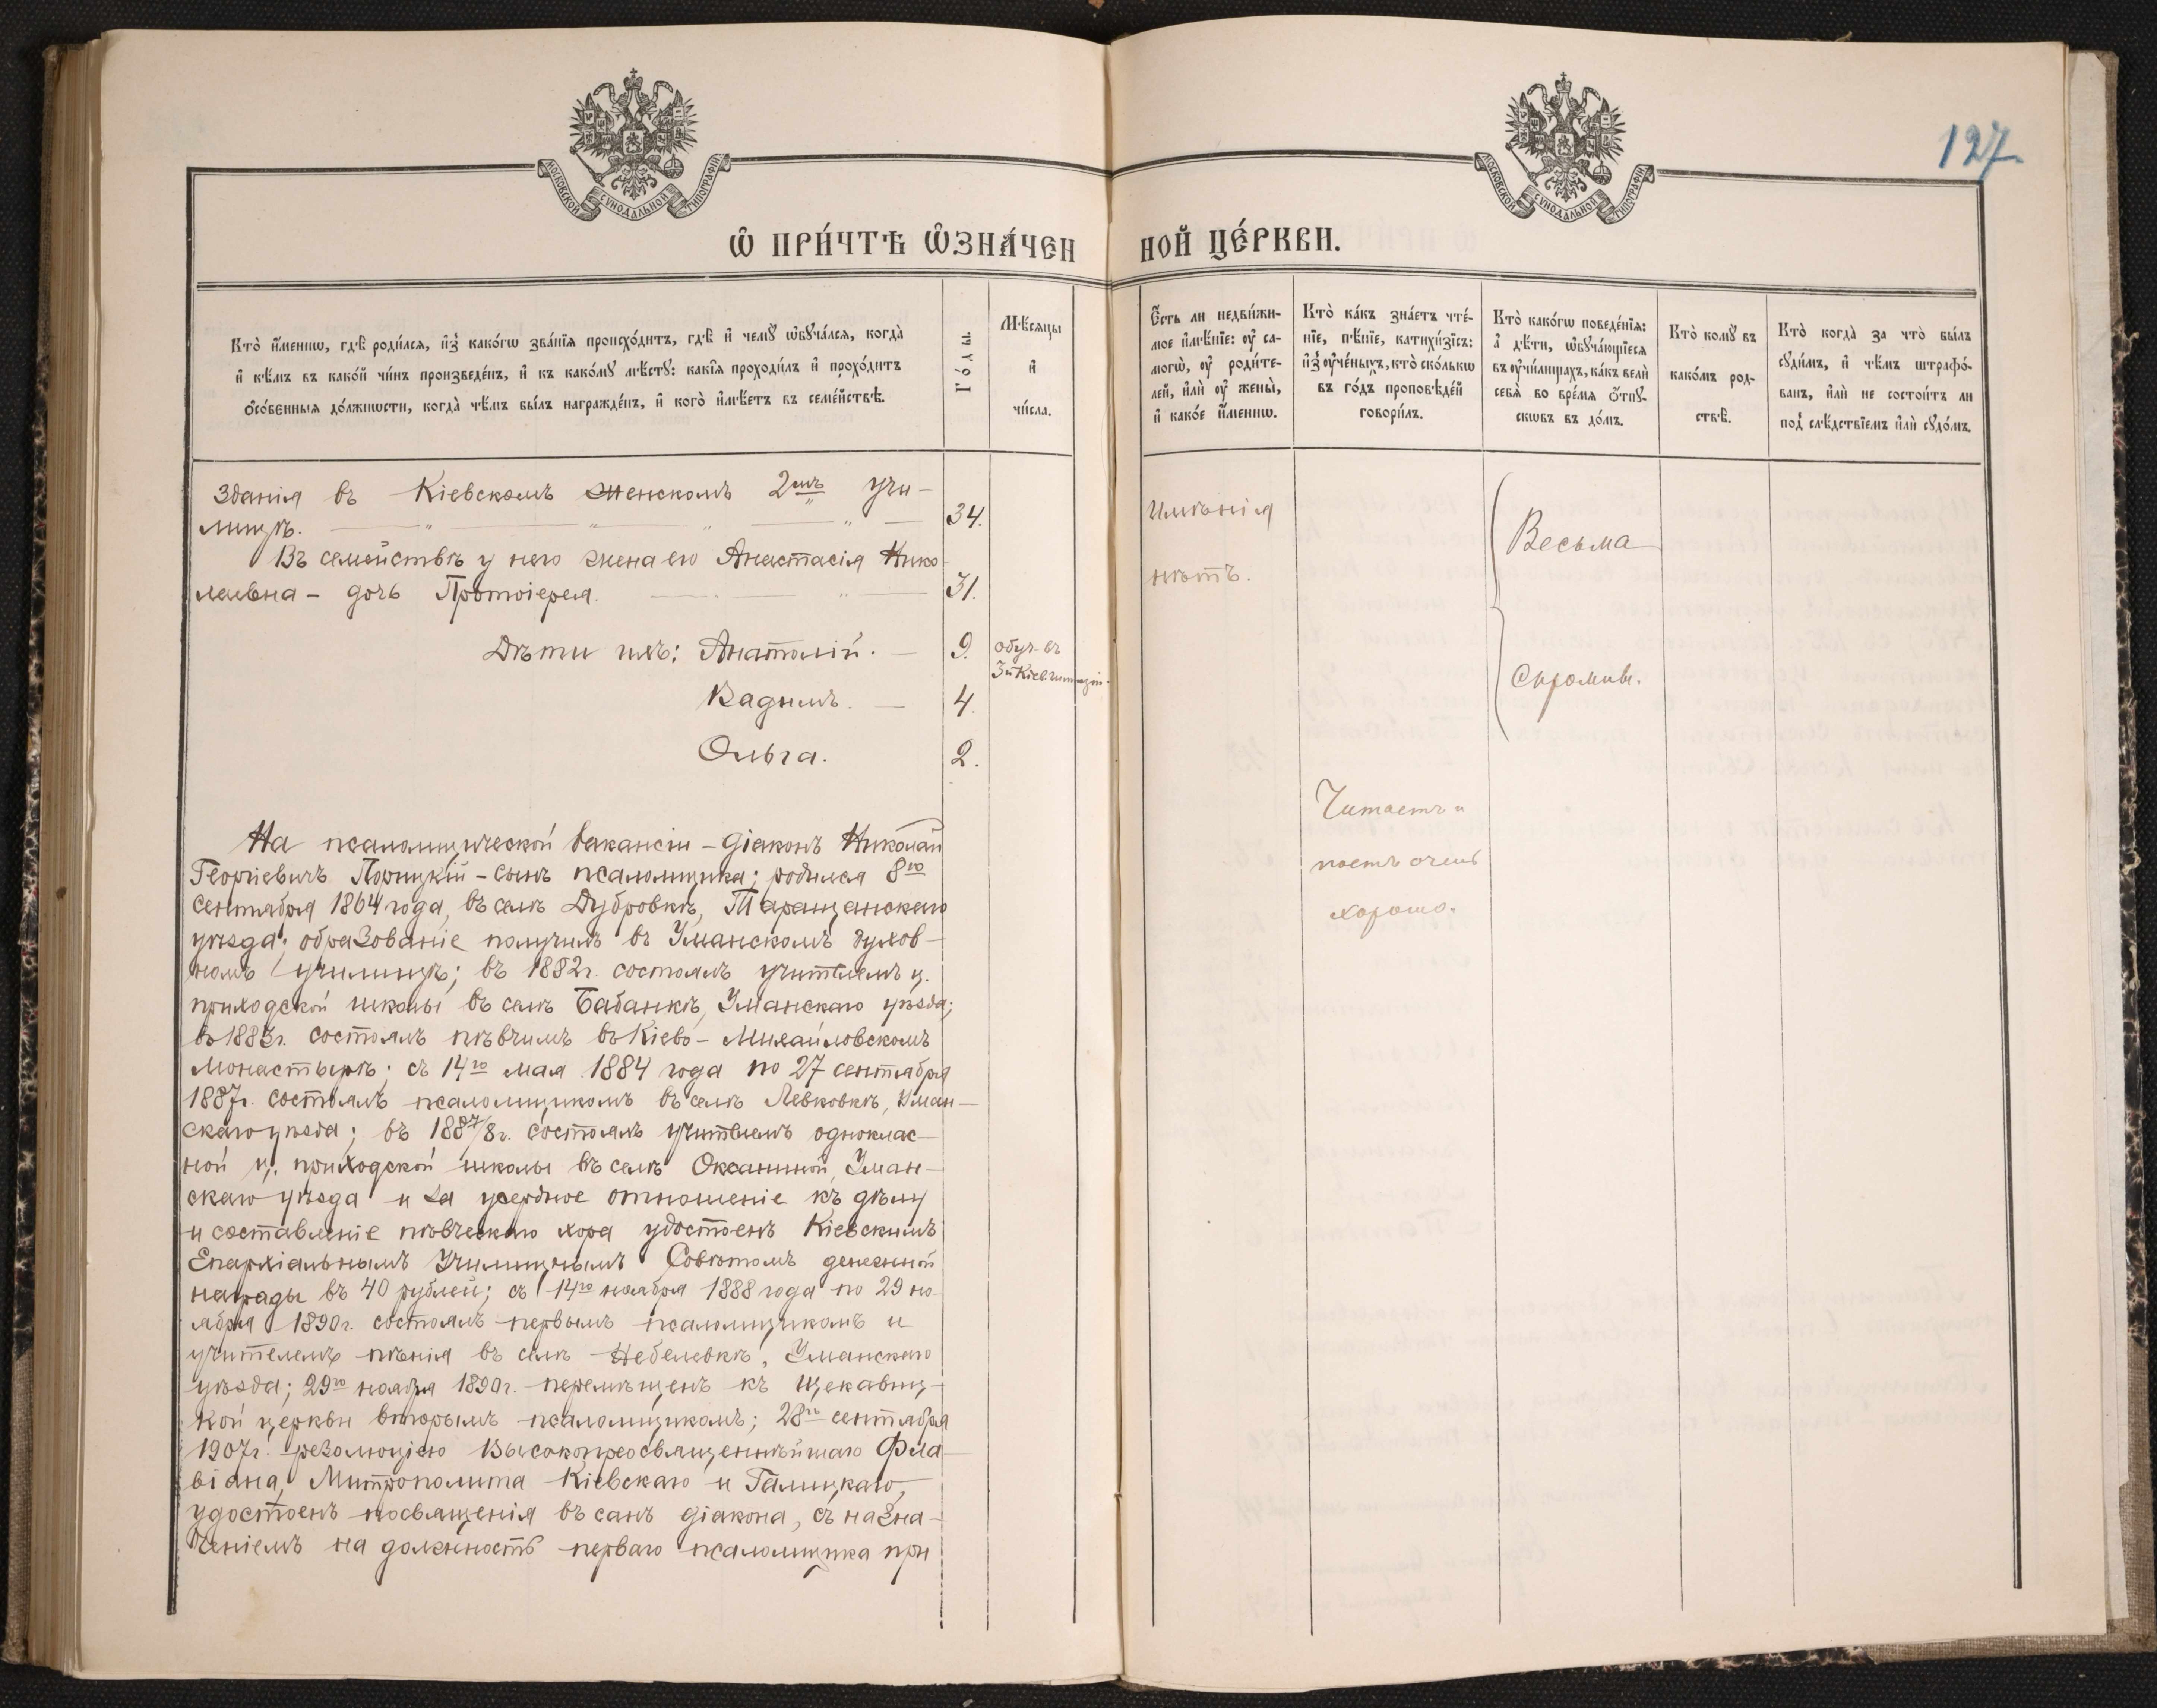 127.
МОСКОВСКОЙ СѴНОДАЛЬНОЙ ТИПОГРАФІИ
МОСКОВСКОЙ СѴНОДАЛЬНОЙ ТИПОГРАФІИ
Ѡ҆ ПРИ́ЧТѢ Ѡ҆ЗНА́ЧЕН
НОЙ ЦЕ́РКВИ.
Кто̀ и҆́менно, гдѣ̀ роди́лся, и҆з̾ како́гѡ зва́нїя происхо́дитъ, гдѣ̀ и҆ чемꙋ̀ ѡ҆бꙋча́лся, когда̀
и҆ кѣ́мъ въ како́й чи́нъ произведе́нъ, и҆ къ како́мꙋ мѣ́стꙋ: какі̑я проходи́лъ и҆ прохо́дитъ
ѻ҆со́бенныя до́лжности, когда̀ чѣ́мъ бы́лъ награжде́нъ, и҆ кого̀ и҆мѣ́етъ въ семе́йствѣ.
Го́ды.
Мѣ́сяцы
и҆
чи́сла.
Є҆́сть ли недви́жи-
мое и҆мѣ́нїе: ᲂу҆ са-
могѡ̀, ᲂу҆ роди́те-
лей, и҆лѝ ᲂу҆ жены̀,
и҆ како́е и҆́менно.
Кто̀ ка́къ зна́етъ чте́-
нїе, пѣ́нїе, катихи́зїсъ:
и҆з̾ ᲂу҆че́ныхъ, кто̀ ско́лькѡ
въ го́дъ проповѣ́дей
говори́лъ.
Кто̀ како́гѡ поведе́нїя:
а҆ дѣ́ти, ѡ҆бꙋча́ющїеся
въ ᲂу҆чи́лищахъ, ка́къ велѝ
себѧ̀ во вре́мя ѻ҆́тпꙋ-
сковъ въ до́мъ.
Кто̀ комꙋ̀ въ
како́мъ род-
ствѣ̀.
Кто̀ когда̀ за что̀ бы́лъ
сꙋди́мъ, и҆ чѣ́мъ штрафо́-
ванъ, и҆лѝ не состои́тъ ли
под̾ слѣ́дствїемъ и҆лѝ сꙋдо́мъ.
зданія въ Кіевскомъ женскомъ 2мъ учи-
лищѣ. 34.
Въ семействѣ у него жена его Анастасія Нико-
лаевна - дочь Протоіерея. 31.
Дѣти ихъ: Анатолій. - 9. обуч. въ
3й Кіев. гимназіи.
Вадимъ. - 4.
Ольга. 2.
имѣнія
нѣтъ.
Весьма
скромны.
На псаломщической вакансіи - діаконъ Николай
Георгіевичъ Порицкій - сынъ псаломщика; родился 8го
сентября 1864 года, въ селѣ Дубровкѣ, Таращанскаго
уѣзда; образованіе получилъ въ Уманскомъ духов-
номъ училищѣ; въ 1882г. состоялъ учителемъ ц.
приходской школы въ селѣ Бабанкѣ, Уманскаго уѣзда;
въ 1883г. состоялъ пѣвчимъ въ Кіево-Михайловскомъ
монастырѣ; съ 14го мая 1884 года по 27 сентября
1887г. состоялъ псаломщикомъ въ селѣ Левковкѣ, Уман-
скаго уѣзда; въ 1887/8г. состоялъ учителемъ однокла с-
ной ц. приходской школы въ селѣ Оксаниной, Уман-
скаго уѣзда и за усердное отношеніе къ дѣлу
и составленіе пѣвческаго хора удостоенъ Кіевскимъ
Епархіальнымъ Училищнымъ Совѣтомъ денежной
награды въ 40 рублей; съ 14го ноября 1888 года по 29 но-
ября 1890г. состоялъ первымъ псаломщикомъ и
учителемъ пѣнія въ селѣ Небелевкѣ, Уманскаго
уѣзда; 29го ноября 1890г. перемѣщенъ къ Щекавиц-
кой церкви вторымъ псаломщикомъ; 28го сентября
1907г. резолюціею Высокопреосвященнѣйшаго Фла-
віана, Митрополита Кіевскаго и Галицкаго,
удостоенъ посвященія въ санъ діакона, съ назна-
ченіемъ на должность перваго псаломщика при
Читаетъ и
поетъ очень
хорошо.